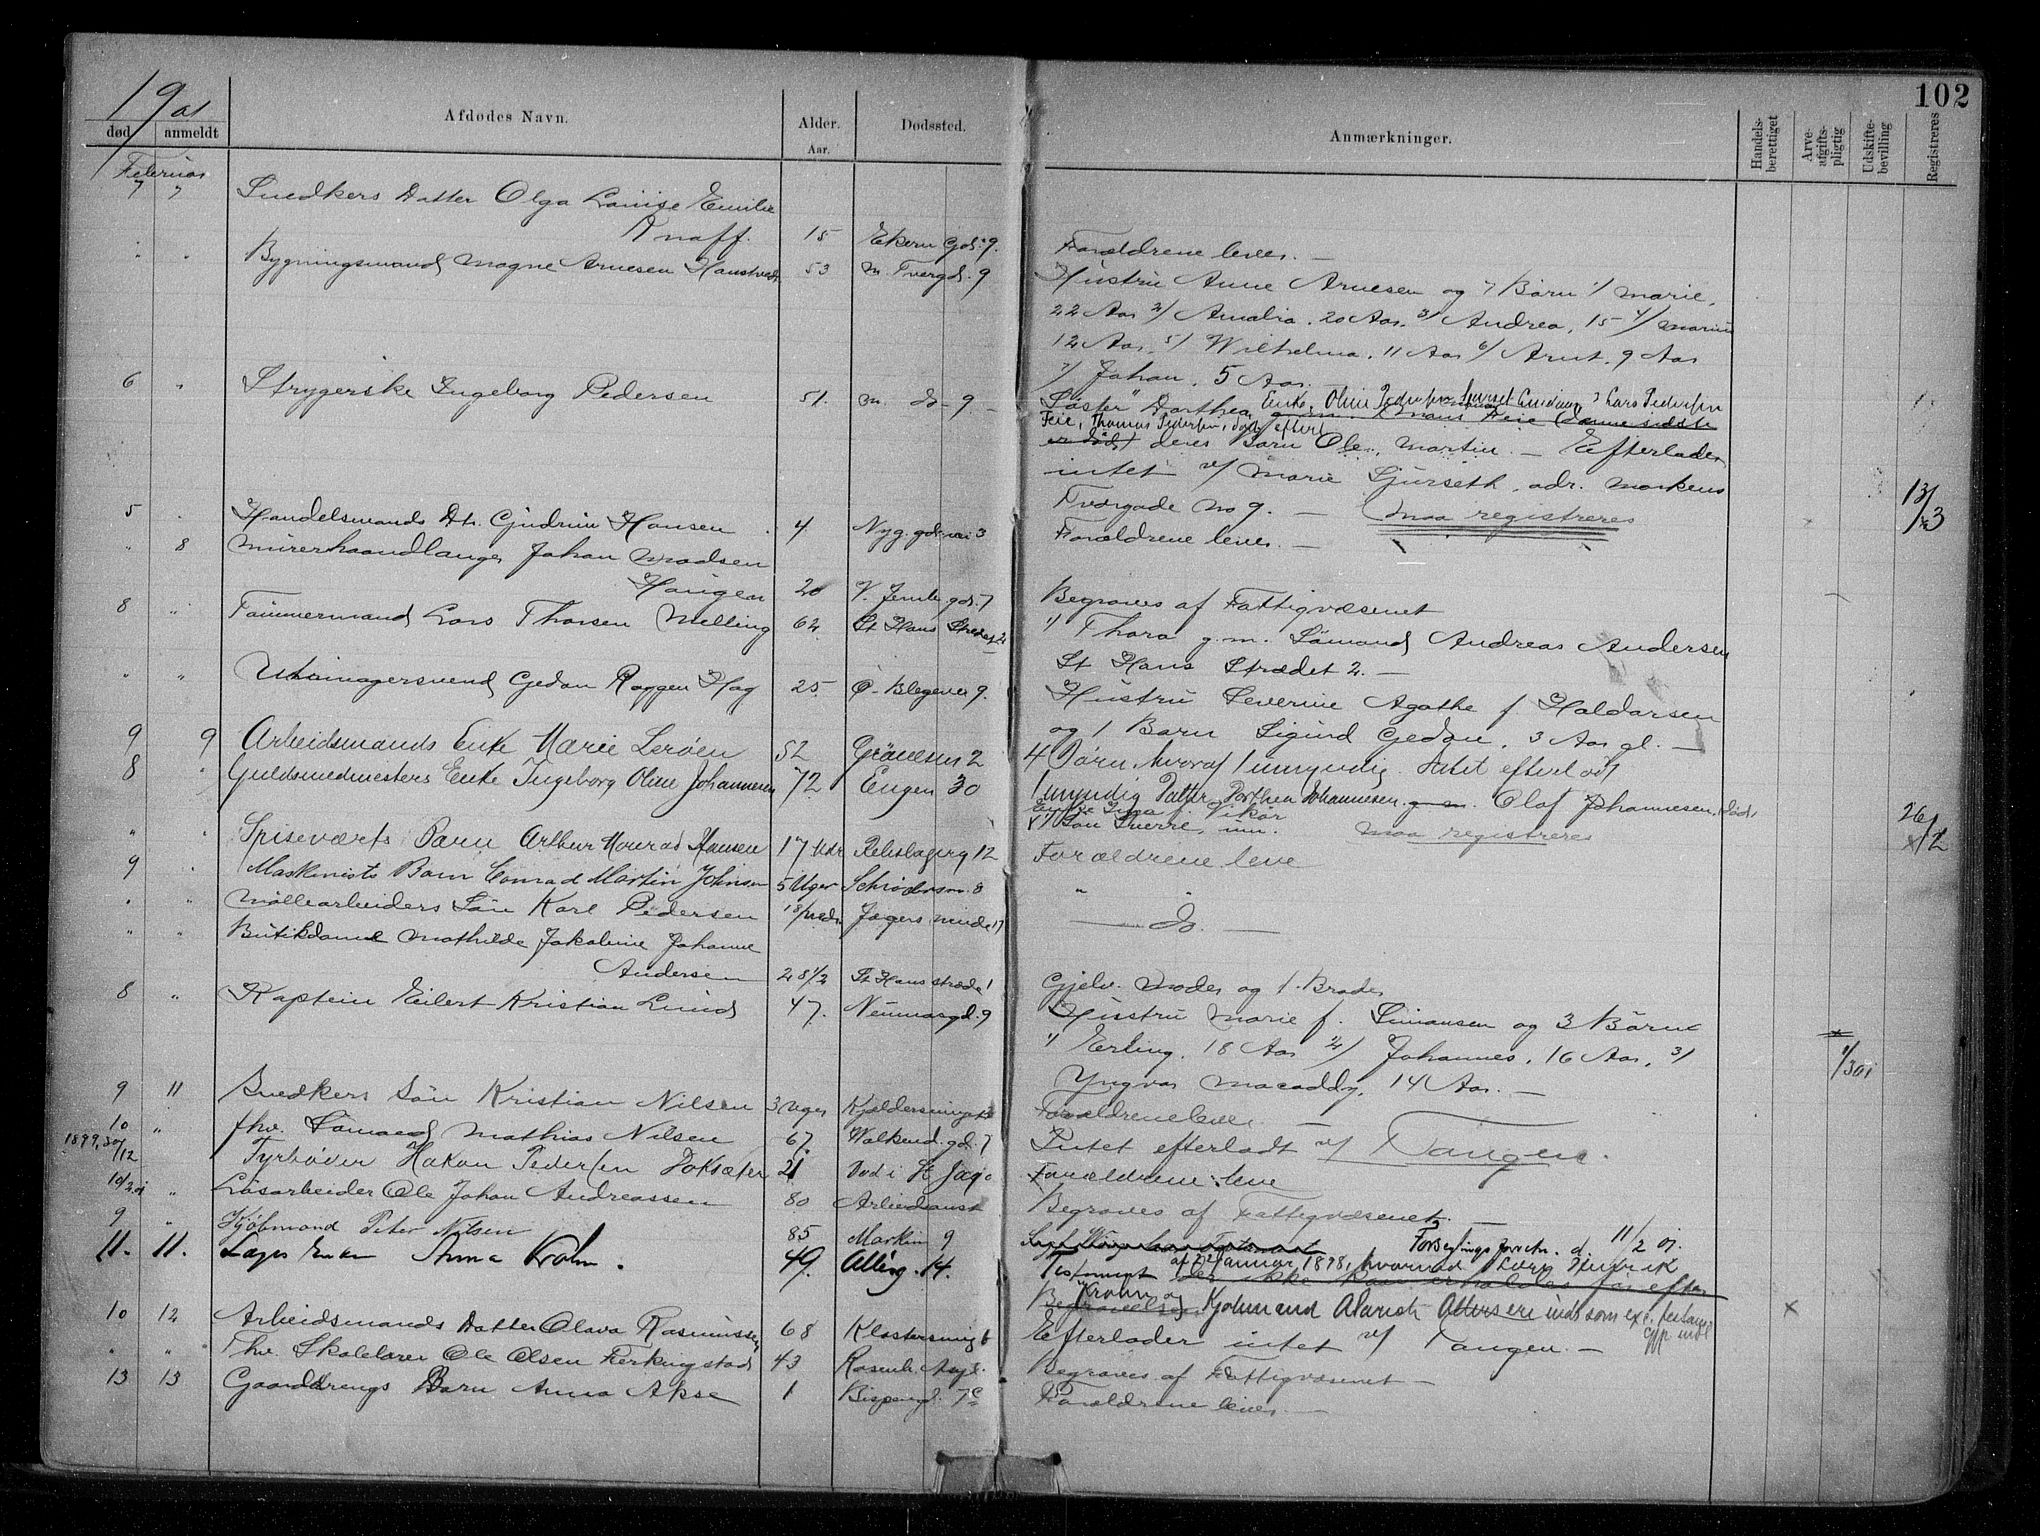 102
1901
død anmeldt Afdødes Navn. Alder. Aar. Dødssted. Anmærkninger. Handelsberettiget Arveafgiftspligtig Udskiftebevilling Registreres
Februar
7 7 Snedkers Datter Olga Louise Emilie
Knoff. 15 Ekern gd. 9. Forældrene lever. —
" " Bygningsmand Mogne Arnesen Haustvedt 53 m. Tvergd. 9 Hustru Anne Arnesen og 7 Børn 1/ Marie,
22 Aar 2/ Amalia, 20 Aar, 3/ Andrea, 15 4/ Marius
12 Aar, 5/ Wilhelma, 11 Aar 6/ Arnt, 9 Aar
7/ Johan, 5 Aar. —
6 " Strygerske Ingeborg Pedersen 51. m. do 9 — Søster Dorthea Enke, Oline Pedersen Lars Pedersen
Feie, Thomas Pedersen, død, efterl.
er død) deres Barn Ole, Martin. — Efterlader
intet v/ Marie Sjurseth, adr. Markens
Tvergade No 9. — maa registreres 13/3
5 " Handelsmands Dtr. Gudrun Hansen 4 Nyg. gd. 3 Forældrene lever. —
" 8 Murerhaandlanger Johan Madsen
Haugen 20 V. Jernb. gd. 7 Begraves af Fattigvæsenet
8 " Tømmermand Lars Thorsen Melling 64 St Hans Strædet 2 1/ Thora g.m. Sømand Andreas Andersen
St Hans Strædet 2. —
" " Uhrmagersvend Gedon Roggen Hag 25. Ø. Blegevei 9. Hustru Severine Agathe f. Haldorsen
og 1 Barn Sigurd Gedon, 3 Aar gl. —
9 9 Arbeidsmands Enke Marie Lerøen 52 Grönners 2 4 Børn, hvoraf 1 umyndig. Intet efterladt
8 " Guldsmedmesters Enke Ingeborg Oline Johannesen 72 Engen 30 1 umyndig Datter Dorthea Johannesen. Olaf Johannesen, død,
Enke Inga f. Vikør
1/ Søn Sverre, um. maa registreres 26/2
" " Spiseværts Barn Arthur Konrad Hansen 17 Mdr Rebslagerg 12 Forældrene leve
9 " Maskinists Barn Conrad Martin Johnsen 5 Uger Schrødersm. 8 "
" " Møllearbeiders Søn Karl Pedersen 18/ Mdr. Jægers minde 17 — do. —
" " Butikdame Mathilde Jakobine Johanne
Andersen 28 1/2 St Hans stræde 1 Gjelv. Moder og 1 Broder
8 " Kaptein Eilert Kristian Lund 47. Neumansgd. 9 Hustru Marie f. Simonsen og 3 Børn
1/ Erling, 18 Aar 2/ Johannes, 16 Aar, 3/ 1/301
Yngvar Macaddy, 14 Aar. —
9 11 Snedkers Søn Kristian Nilsen 3 Uger Kjeldersmug Forældrene lever. —
10 " fhv. Sømand Mathias Nilsen 67. Walkend. gd. 7 Intet efterladt v/ Tangen.
1899, 30/12 Fyrbøder Hakon Pedersen Toksæter 21 Død i St Jago Forældrene leve
10/2 01 " Løsarbeider Ole Johan Andreassen 80 Arbeidsanst Begraves af Fattigvæsenet —
9 " Kjøbmand Peter Nilsen 85 Marken 9 Forseglings forretn. d. 11/2 01.
11. 11. Enke Anna Krohn. 49. Alleg. 14. Testament af 22 Januar 1898, hvorved Henrik
Krohn og Kjøbmand indt som exc. testam.
10 12 Arbeidsmands Datter Olava Rasmussen 68 Klostersmug 6 Efterlader intet v/ Tangen. —
" " Fhv. Skolelærer Ole Olsen Ferkingstad 43 Rosenb. Asyl. Begraves af Fattigvæsenet —
13 13 Gaarddrengs Barn Anna Akse 1 Bispengd. 7c Forældrene lever. —